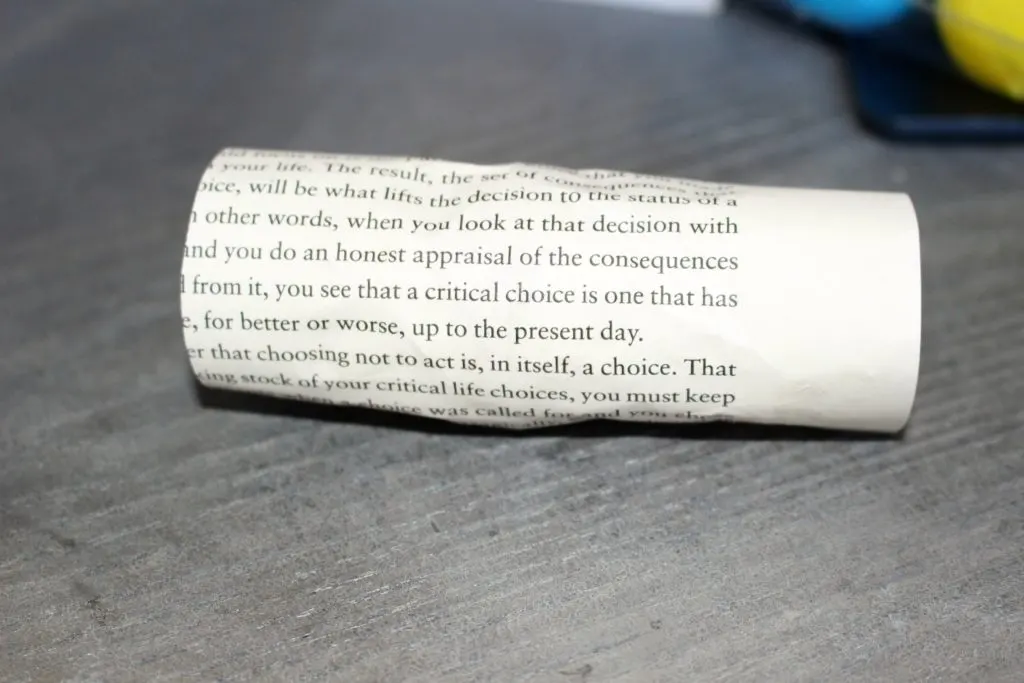 your life. The result, the set of consequences that
oice, will be what lifts the decision to the status of a
n other words, when you look at that decision with
and you do an honest appraisal of the consequences
d from it, you see that a critical choice is one that has
e, for better or worse, up to the present day.
er that choosing not to act is, in itself, a choice. That
king stock of your critical life choices, you must keep
when a choice was called for and you chose